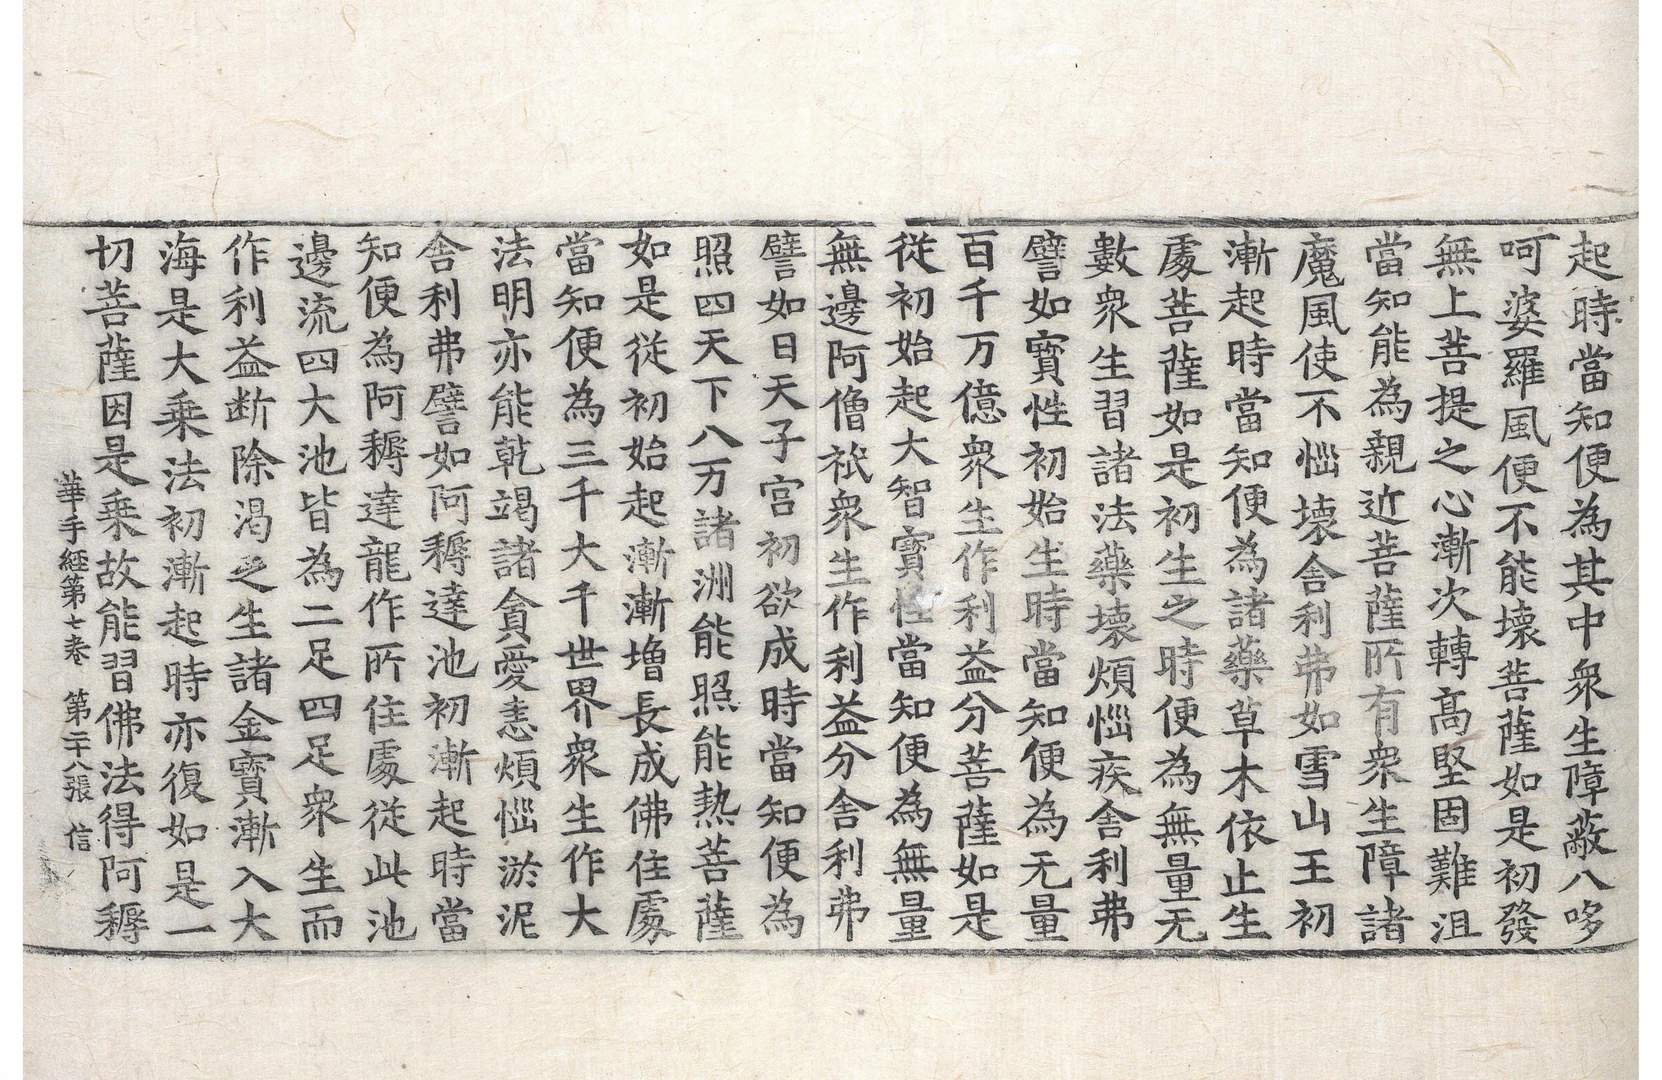 起時當知便為其中衆生障蔽八哆
呵婆羅風便不能壞菩薩如是初發
無上菩提之心漸次轉高堅固難沮
當知能為親近菩薩所有衆生障諸
魔風使不惱壞舍利弗如雪山王初
漸起時當知便為諸藥草木依止生
處菩薩如是初生之時便為無量无
數衆生習諸法藥壞煩惱疾舍利弗
譬如寶性初始生時當知便為无量
百千万億衆生作利益分菩薩如是
從初始起大智寶性當知便為無量
無邊阿僧祇衆生作利益分舍利弗
譬如日天子宮初欲成時當知便為
照四天下八万諸洲能照能熱菩薩
如是從初始起漸漸增長成佛住處
當知便為三千大千世界衆生作大
法明亦能乾竭諸貪愛恚煩惱淤泥
舍利弗譬如阿耨達池初漸起時當
知便為阿耨達龍作所住處從此池
邊流四大池皆為二足四足衆生而
作利益断除渴乏生諸金寶漸入大
海是大乘法初漸起時亦復如是一
切菩薩因是乘故能習佛法得阿耨
華手經第七卷　第二十八張　信